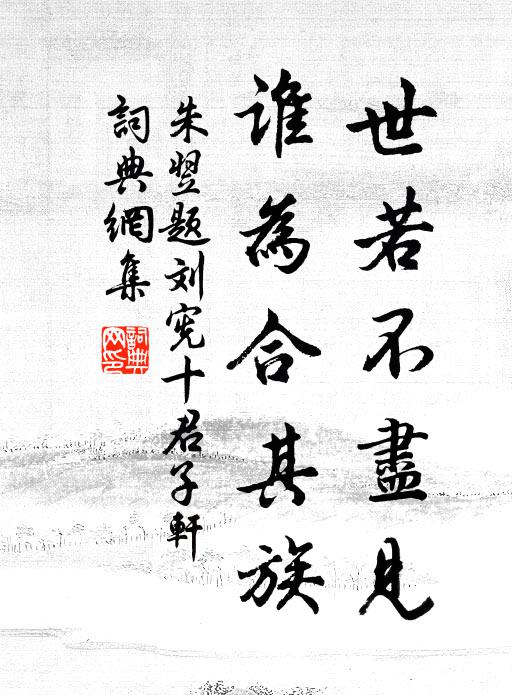 世若不盡見
誰為合其族
朱翌题刘宪十君子軒
詞典網集
詞典
网印